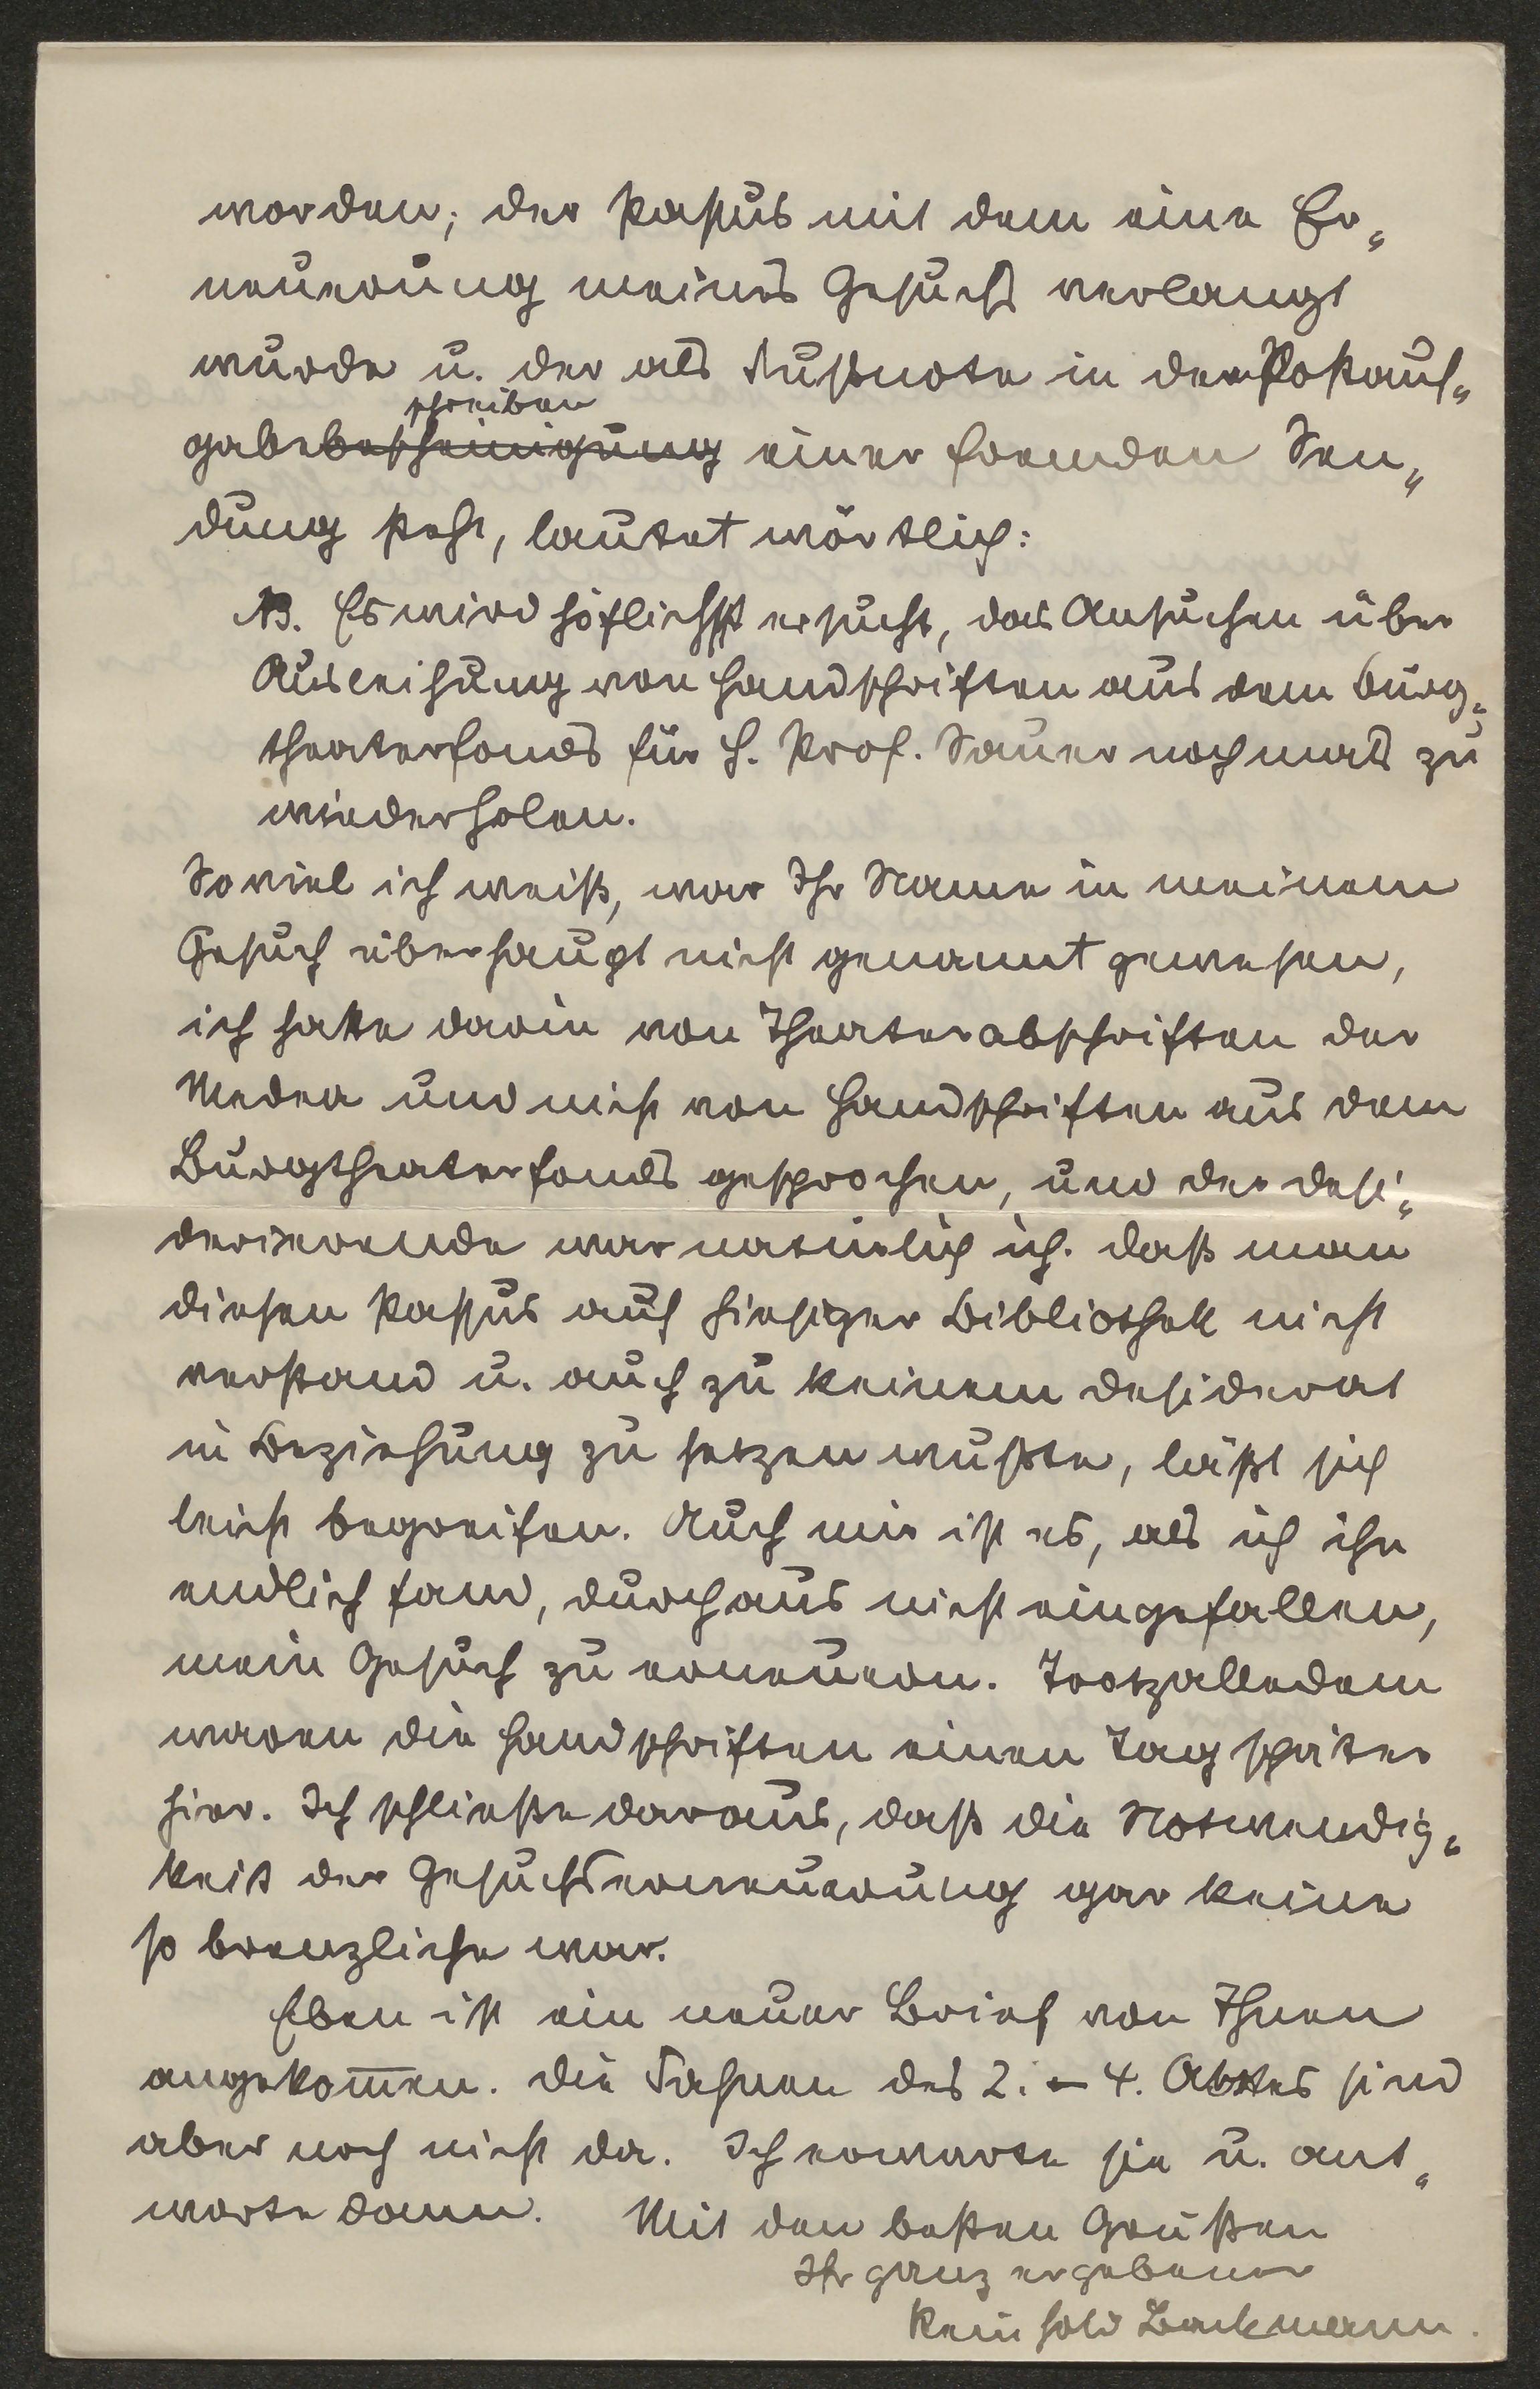 worden; der Passus mit dem eine Er„
neuerung meines Gesuchs verlangt
wurde u. der als Fußnote in dem Postauf„
schreiben
gabebescheinigung einer fremden Sen„
dung steht, lautet wörtlich:
NB. Es wird höflichst ersucht, das Ansuchen über
Ausleihung von Handschriften aus dem Burg„
theaterfonds für H. Prof. Sauer nochmals zu
wiederholen.
Soviel ich weiß, war Ihr Name in meinem
Gesuch überhaupt nicht genannt gewesen,
ich hatte darin von Theaterabschriften der
Medea und nicht von Handschriften aus dem
Burgtheaterfonds gesprochen, und der desi„
derierende war natürlich ich. Daß man
diesen Passus auf hiesiger Bibliothek nicht
verstand u. auch zu keinem Desiderat
in Beziehung zu setzen wußte, läßt sich
leicht begreifen. Auch mir ist es, als ich ihn
endlich fand, durchaus nicht eingefallen,
mein Gesuch zu erneuern. Trotzalledem
waren die Handschriften einen Tag später
hier. Ich schließe daraus, daß die Notwendig„
keit der Gesuchserneuerung gar keine
so brenzliche war.
Eben ist ein neuer Brief von Ihnen
angekom̅en. Die Fahnen des 2. – 4. Aktes sind
aber noch nicht da. Ich erwarte sie u. ant„
worte dann. Mit den besten Grüßen
Ihr ganz ergebener
Reinhold Backmann.